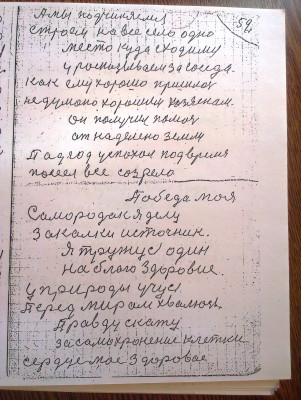 59.
А мы подчиняемся
строем на все село одно
место куда сходиму
у расказываем за соседа.
Как ему хорошо пришлось
не думано хорошим хозяенам.
Он получил помощ
от наделено земли
Подход успехам подвремя
посеел все созрело
Победа моя
Самородок я делу
Закалки источник.
Я тружус один
на благо здоровие.
у природы учус
Перед миром хвалюсь.
Правду скажу
за самохронение клетки
сердце мое здоровое